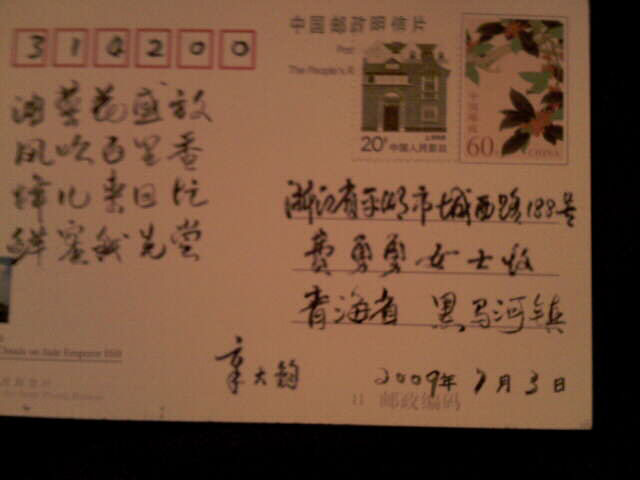 314200
中国邮政明信片
Post
The People's R
20分 中国人民邮政
中国邮政
60分 CHINA
油菜花盛放
风吹百里香
蜂儿来日忙
鲜蜜我先尝
浙江省平湖市城西路188号
费勇勇女士收
青海省 黑马河镇
章大钧
2009年7月3日
邮政编码
Clouds on Jade Emperor Hill